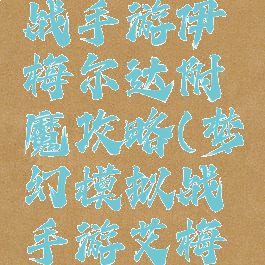 战手游伊
梅尔达附
魔攻略(梦
幻模拟战
手游艾梅